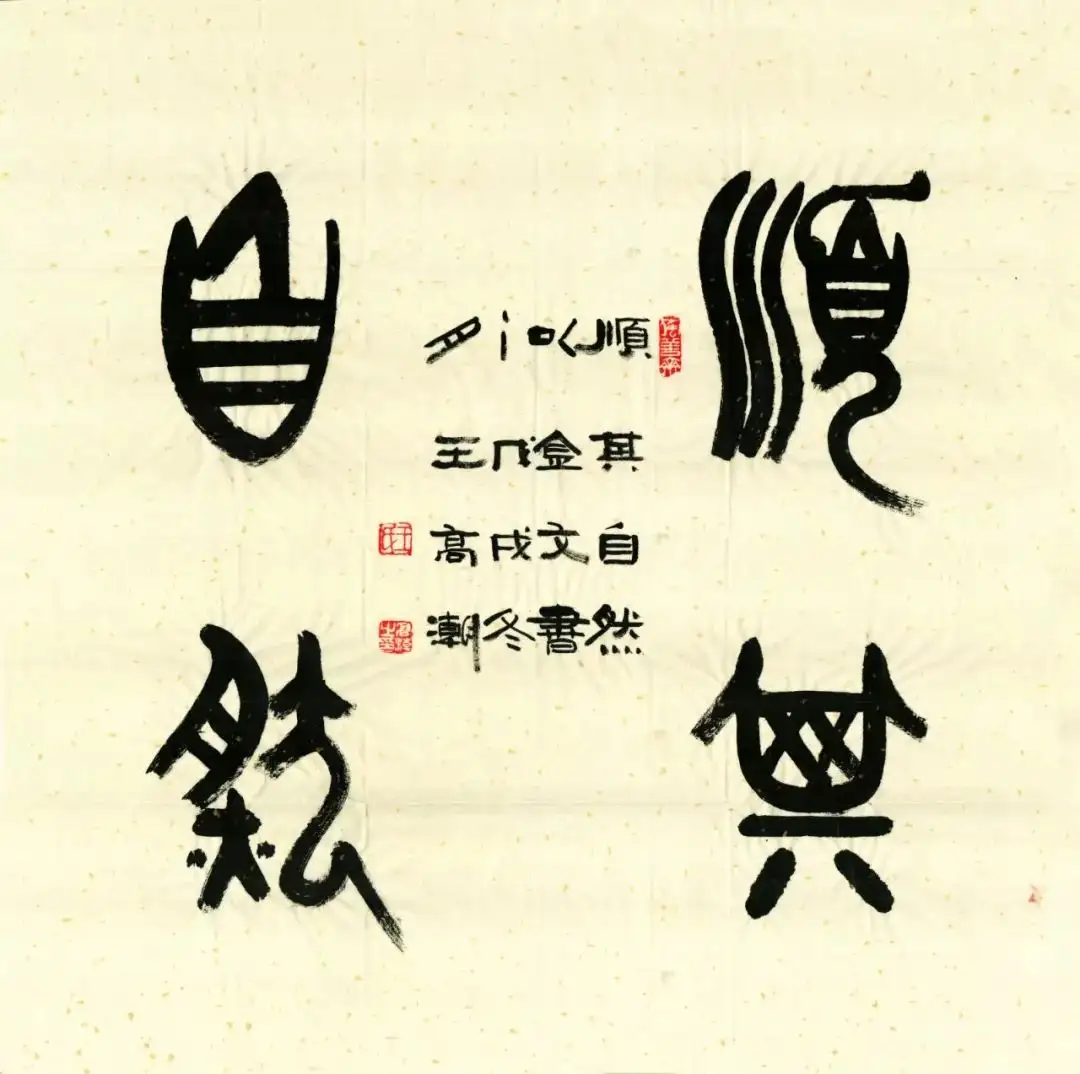 順其
自然
順其自然
以金文書
戊戌冬
月王高潮